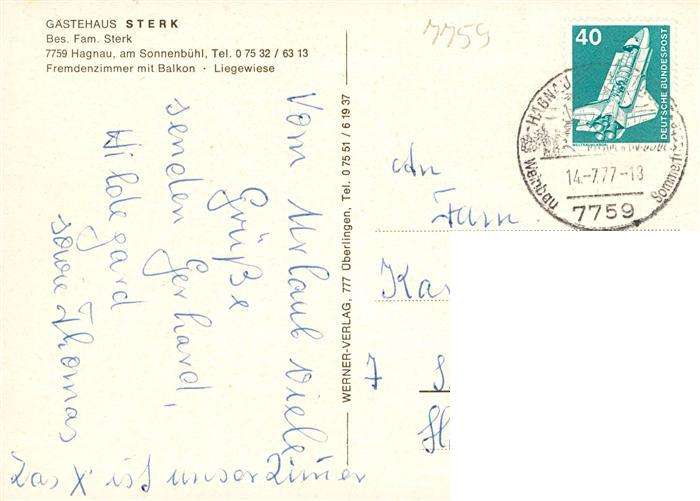 GÄSTEHAUS STERK
Bes. Fam. Sterk
7759 Hagnau, am Sonnenbühl, Tel. 0 75 32 / 63 13
Fremdenzimmer mit Balkon · Liegewiese
Vom Urlaub viele
Grüße
senden Gerhard,
Hildegard
sowie Thomas
Das X ist unser Zimmer
WERNER-VERLAG, 777 Überlingen, Tel. 0 75 51 / 6 19 37
7759
40
DEUTSCHE BUNDESPOST
WELTRAUMLABOR
HAGNAU
Weinbau
14.-7.77-18
7759
An
Fam
7